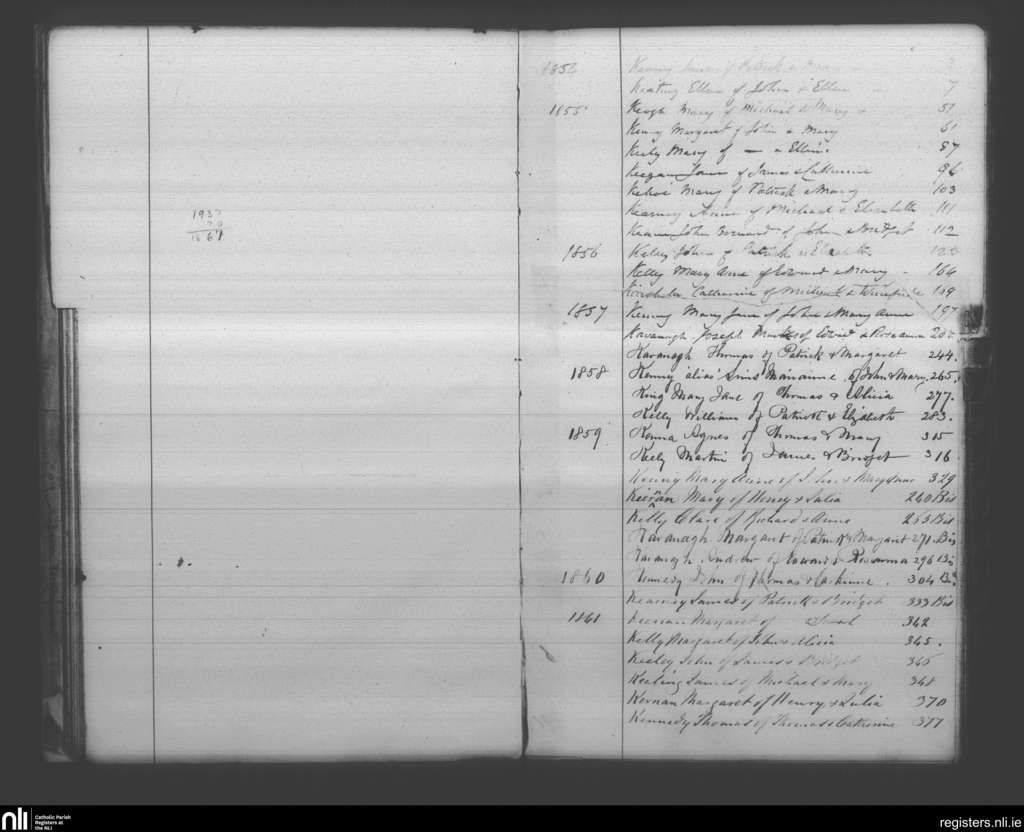 1937
70
1867
Kenny James of Patrick &
Keating Ellen of John & Ellen 7
1855 Keogh Mary of Michael & Mary 51
Kenny Margaret of John & Mary 61
Keely Mary of — & Ellen 87
Keegan Jane of James & Catherine 96
Kehoe Mary of Patrick & Mary 103
Kearney Anne of Michael & Elizabeth 111
John Bernard of John & Bridget 112
1856 John of Patrick & Elizabeth
Kelly Mary Anne of Edward & Mary 164
Catherine of Michael & Winefride
1857 Kenny Mary Jane of John & Mary Anne 197
Kavanagh Joseph of Edwd & Roseanna
Kavanagh Thomas of Patrick & Margaret 244.
1858 Kenny 'alias' of John & Mary 265.
King Mary Jane of Thomas & Alicia 277.
Kelly William of Patrick & Elizabeth 283.
1859 Kenna Agnes of Thomas & Mary 315
Keely Martin of James & Bridget 316
Kenny Mary Anne of John & Mary Anne 329
Kiernan Mary of Henry & Julia 260 Bis
Kelly Clare of Richard & Anne 265 Bis
Kavanagh Margaret of Patrick & Margaret 271 Bis
Kavanagh Andrew of Edward & Roseanna 296 Bis
1860 Kennedy John of Thomas & Catherine . 304 Bis
Kearney James of Patrick & Bridget 333 Bis
1861 Keenan Margaret of & Sarah 342
Kelly Margaret of John & Alicia 345.
Keeley John of James & Bridget 346
Keating James of Michael & Mary 368
Kernan Margaret of Henry & Julia 370
Kennedy Thomas of Thomas & Catherine 377
nli Catholic Parish
Registers at
the NLI
registers.nli.ie